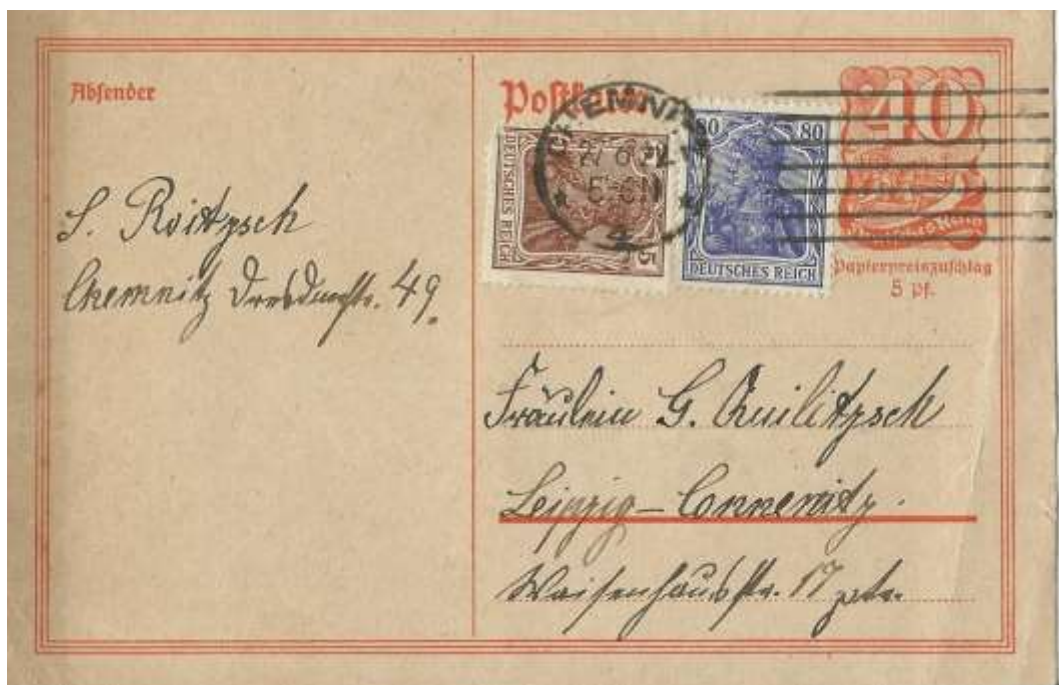 Absender
Postkarte
40
S. Roitzsch
Chemnitz Dresdnerstr. 49.
CHEMNITZ
27.6.
5-6 N
4
DEUTSCHES REICH
5
80 80
DEUTSCHES REICH
Deutsches Reich
Papierpreiszuschlag
5 Pf.
Fräulein G. Quilitzsch
Leipzig – Connewitz.
Waisenhausstr. 17 ptr.